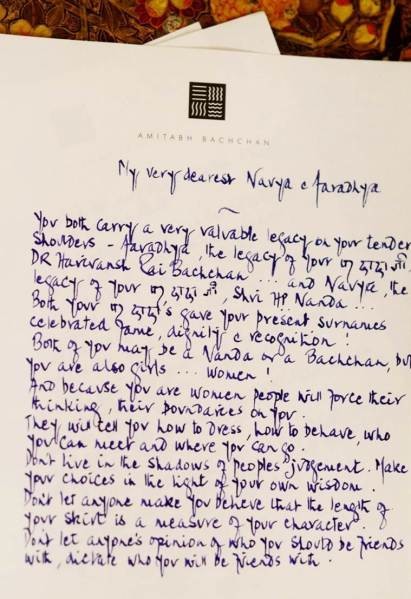 AMITABH BACHCHAN
My very dearest Navya & Aaradhya
You both carry a very valuable legacy on your tender
shoulders - Aaradhya, the legacy of your पर दादा जी,
DR Harivansh Rai Bachchan ... and Navya, the
legacy of your पर दादा जी, Shri HP Nanda ...
Both your पर दादा जी's gave your present surnames
celebrated fame, dignity & recognition!
Both of you may be a Nanda or a Bachchan, but
you are also girls ... women!
And because you are women people will force their
thinking, their boundaries on you.
They will tell you how to dress, how to behave, who
you can meet and where you can go.
Don't live in the shadows of people's judgement. Make
your choices in the light of your own wisdom.
Don't let anyone make you believe that the length of
your skirt is a measure of your character.
Don't let anyone's opinion of who you should be friends
with, dictate who you will be friends with.